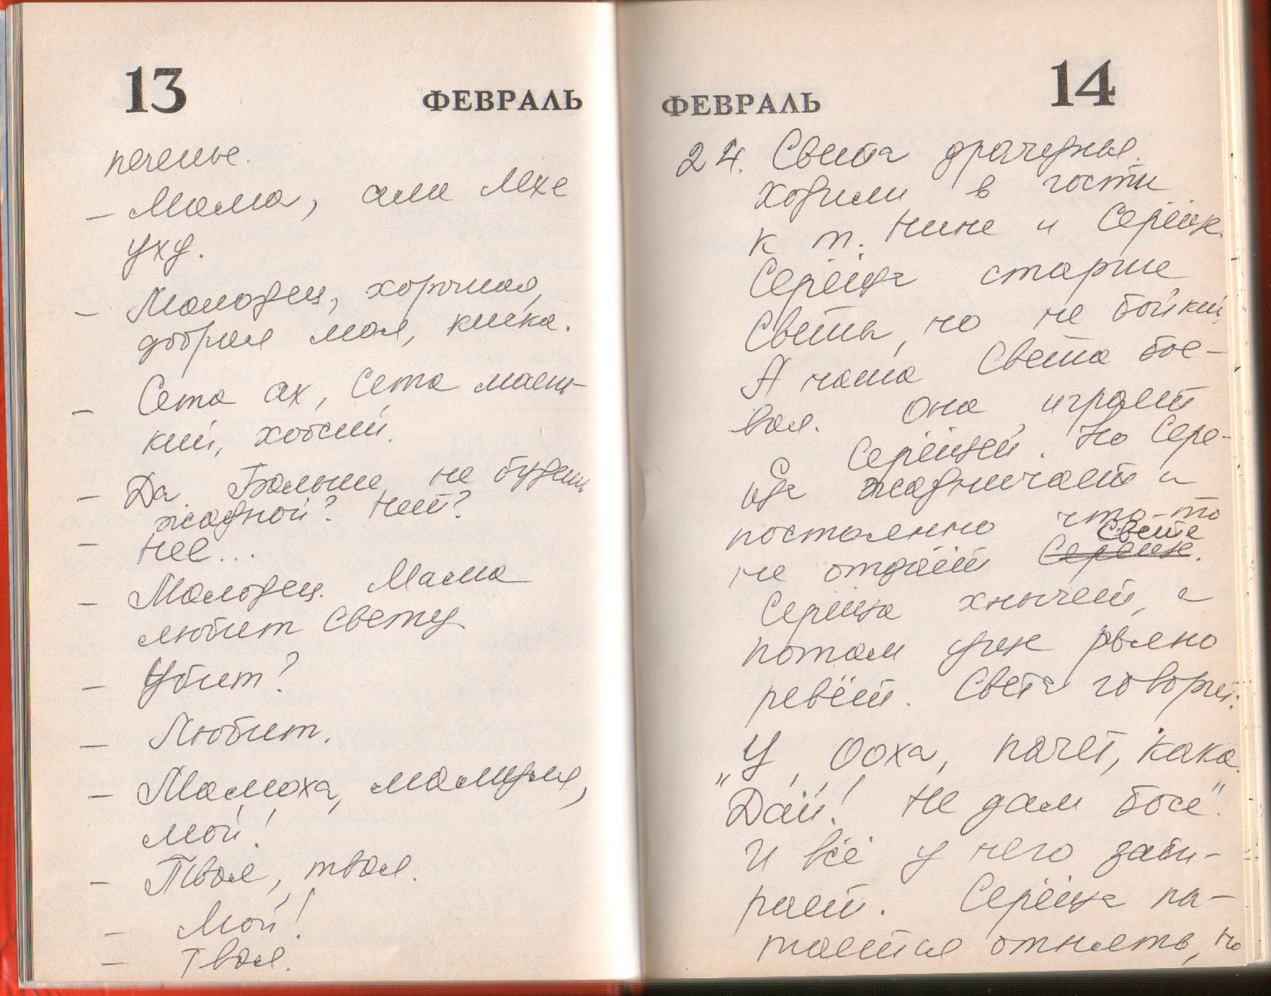 13 ФЕВРАЛЬ
печенье.
– Мама, сама Мехе
уху.
– Молодец, хорошая,
добрая моя, киска.
– Сета ах, Сета маень-
кий, хобсий.
– Да. Больше не будешь
жадной? Нет?
– Нее...
– Молодец. Мама
любит Свету
– Убит?
– Любит.
– Мамоха, мамуля,
мой!
– Твоя, твоя.
– Мой!
– Твоя.
ФЕВРАЛЬ 14
24. Света драчунья.
Ходили в гости
к т. Нине и Серёже.
Серёжа старше
Светы, но не бойкий.
А наша Света бое-
вая. Она играет
с Серёжей. Но Серё-
жа жадничает и
постоянно что-то
не отдаёт Серёже. Свете
Серёжа хнычет, а
потом уже рьяно
ревёт. Света говорит:
„У, Ооха, пачет, кака.
Дай! Не дам босе".
И всё у него заби-
рает. Серёжа пы-
тается отнять, но